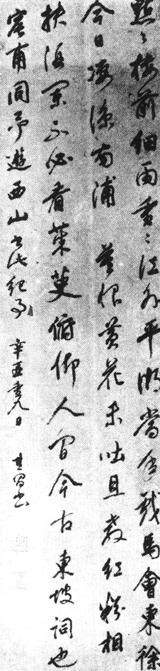 點々楼前細雨重々江外平湖當年戲馬會東徐
今日凄涼南浦 莫恨黄花未吐且教紅粉相
扶酒闌不必看茱萸俯仰人間今古 東坡詞也
甫同予遊西山書此紀事 辛丑重九日 其昌書